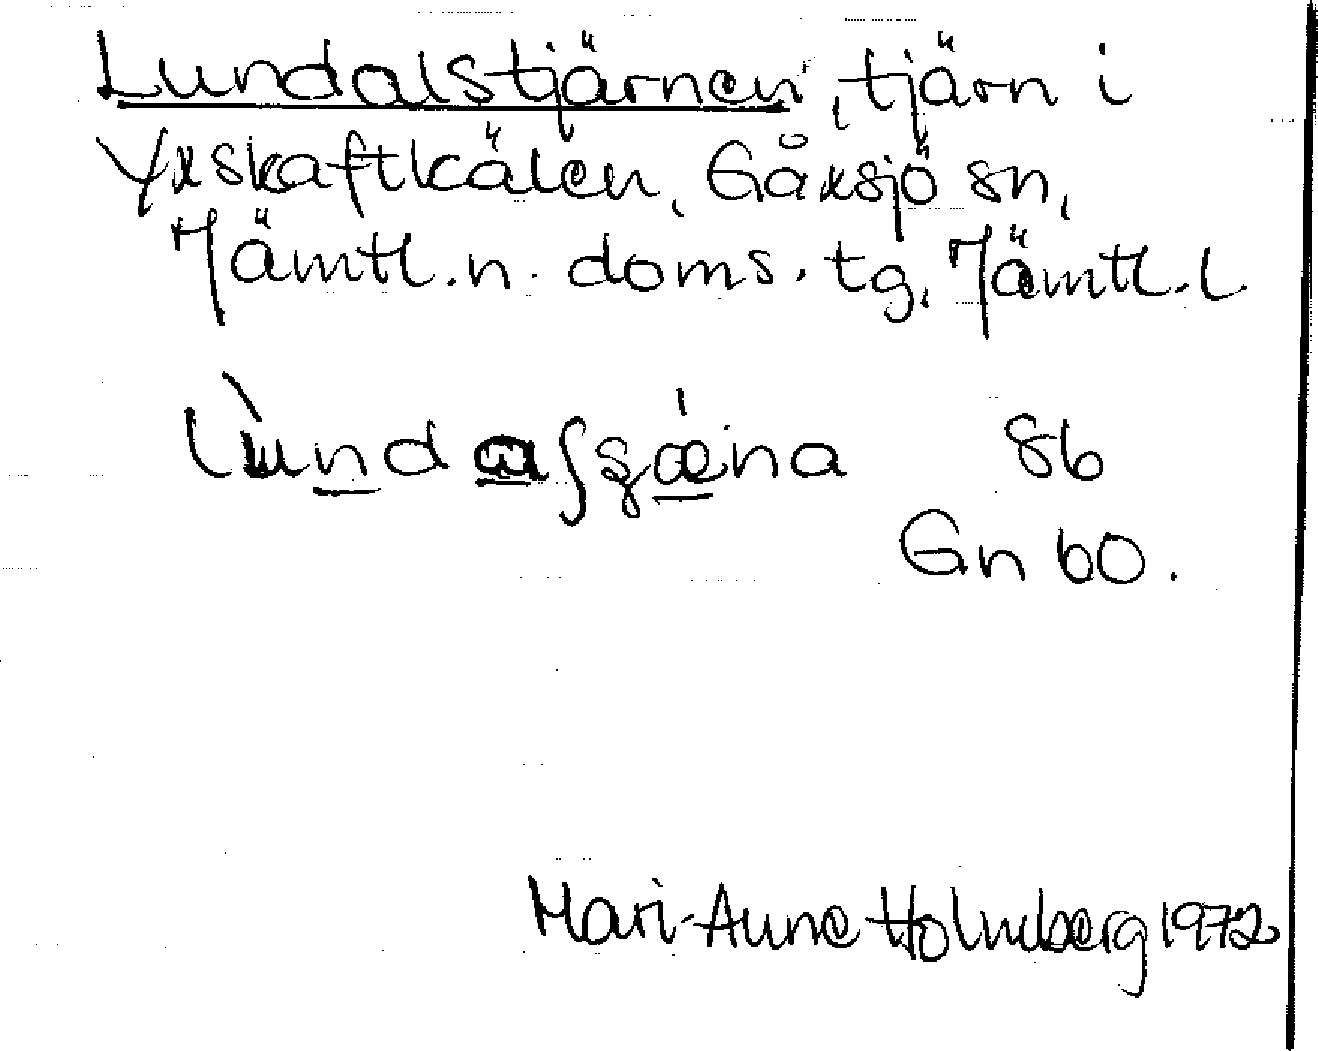 Lundalstjärnen, tjärn i
Yxskaftkälen, Gåxsjö sn,
Jämtl. n. doms. tg, Jämtl. l
8b
Gn 60.
Mari-Anne Holmberg 1972